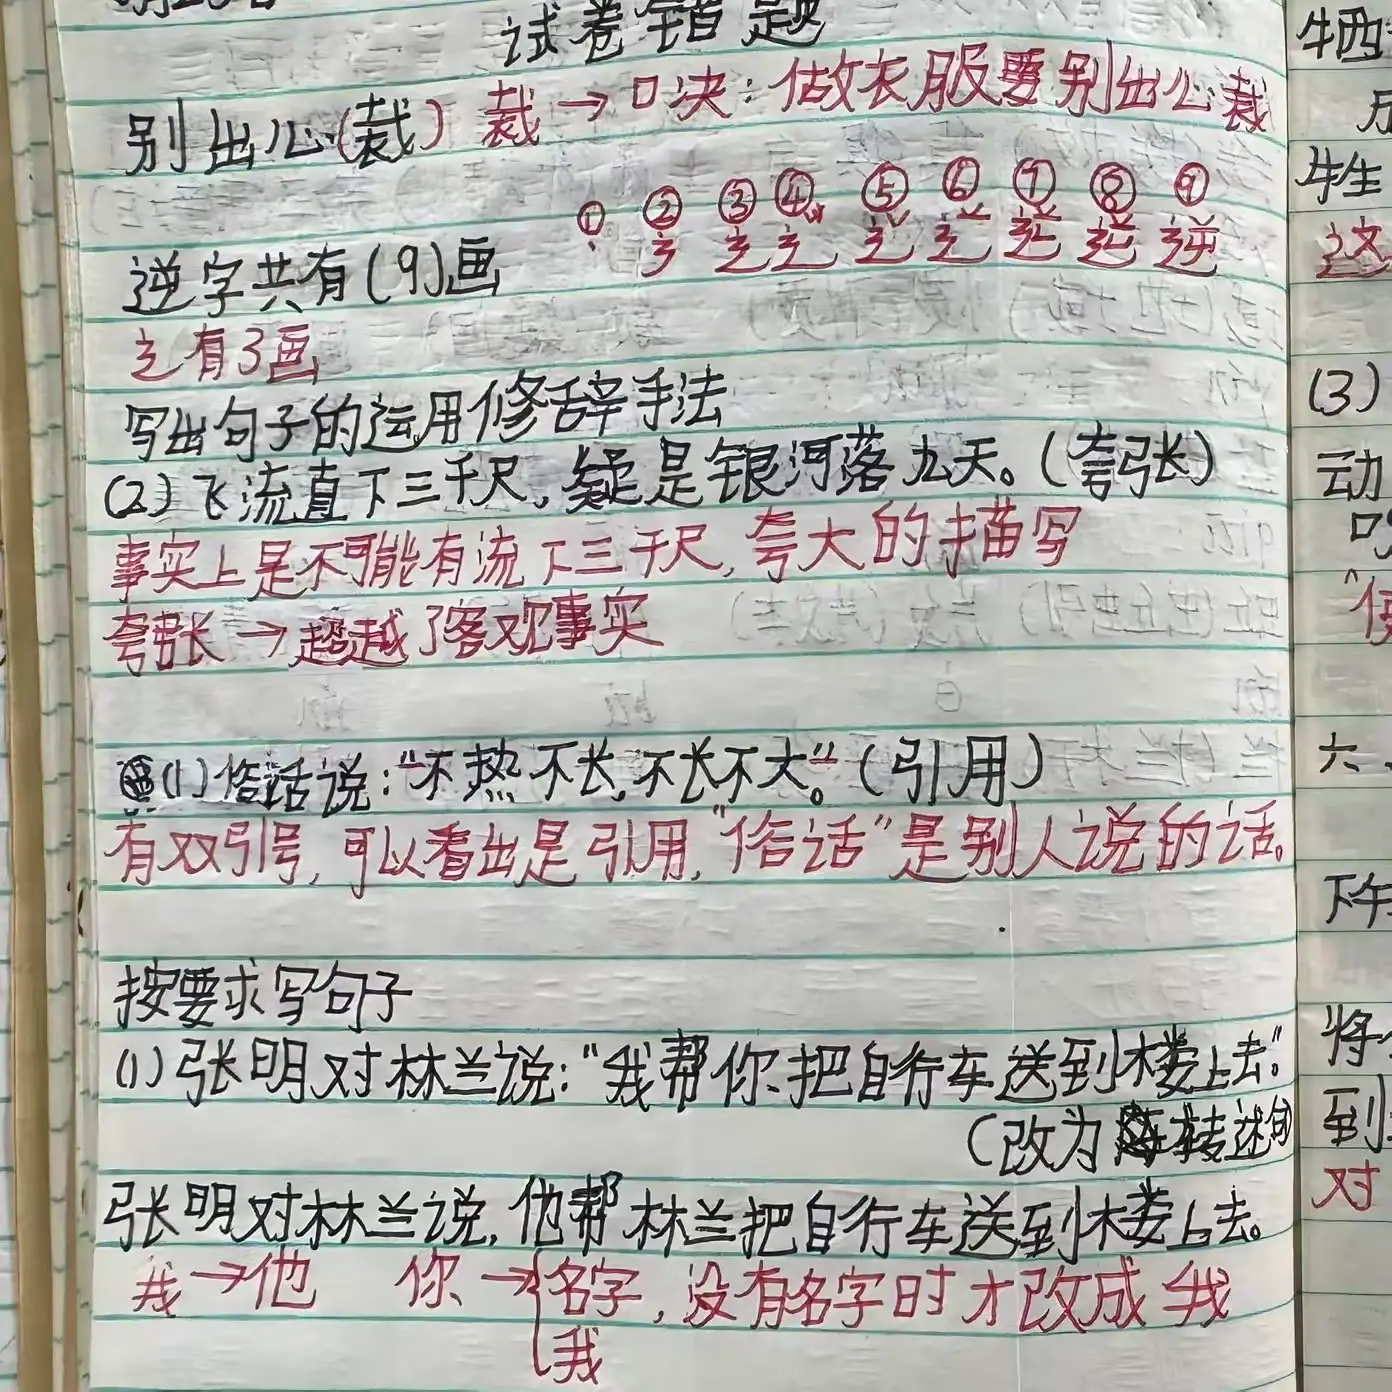 试卷错题
别出心(裁) 裁→口决:做衣服要别出心裁
① ② ③ ④ ⑤ ⑥ ⑦ ⑧ ⑨
逆字共有(9)画
辶有3画
写出句子的运用修辞手法
(2)飞流直下三千尺,疑是银河落九天。(夸张)
事实上是不可能有流下三千尺,夸大的描写
夸张→超越了客观事实
(1)俗话说:"不热不长,不长不大"。(引用)
有双引号,可以看出是引用,"俗话"是别人说的话。
按要求写句子
(1)张明对林兰说:"我帮你把自行车送到楼上去。"
(改为转述句)
张明对林兰说,他帮林兰把自行车送到楼上去。
我→他 你→名字,没有名字时才改成我
我
牺
牲
这
(3)
动
六、
下午
将
到
对